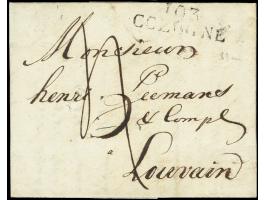 103
COLOGNE
Monsieur
henri Peemans
& Comp
à
Louvain